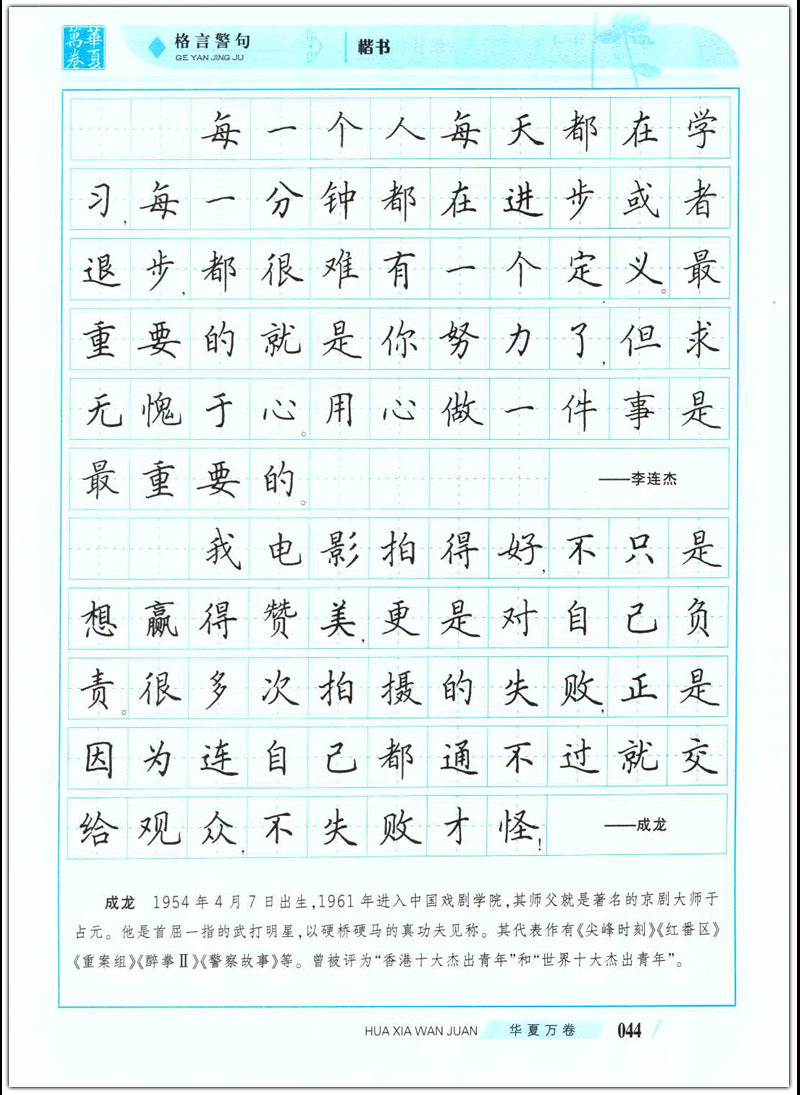 華夏萬卷
格言警句
GE YAN JING JU
楷书
每一个人每天都在学
习,每一分钟都在进步或者
退步,都很难有一个定义。最
重要的就是你努力了,但求
无愧于心。用心做一件事是
最重要的。 ——李连杰
我电影拍得好,不只是
想赢得赞美,更是对自己负
责。很多次拍摄的失败,正是
因为连自己都通不过就交
给观众,不失败才怪! ——成龙
成龙 1954年4月7日出生,1961年进入中国戏剧学院,其师父就是著名的京剧大师于
占元。他是首屈一指的武打明星,以硬桥硬马的真功夫见称。其代表作有《尖峰时刻》《红番区》
《重案组》《醉拳Ⅱ》《警察故事》等。曾被评为“香港十大杰出青年”和“世界十大杰出青年”。
HUA XIA WAN JUAN 华夏万卷 044